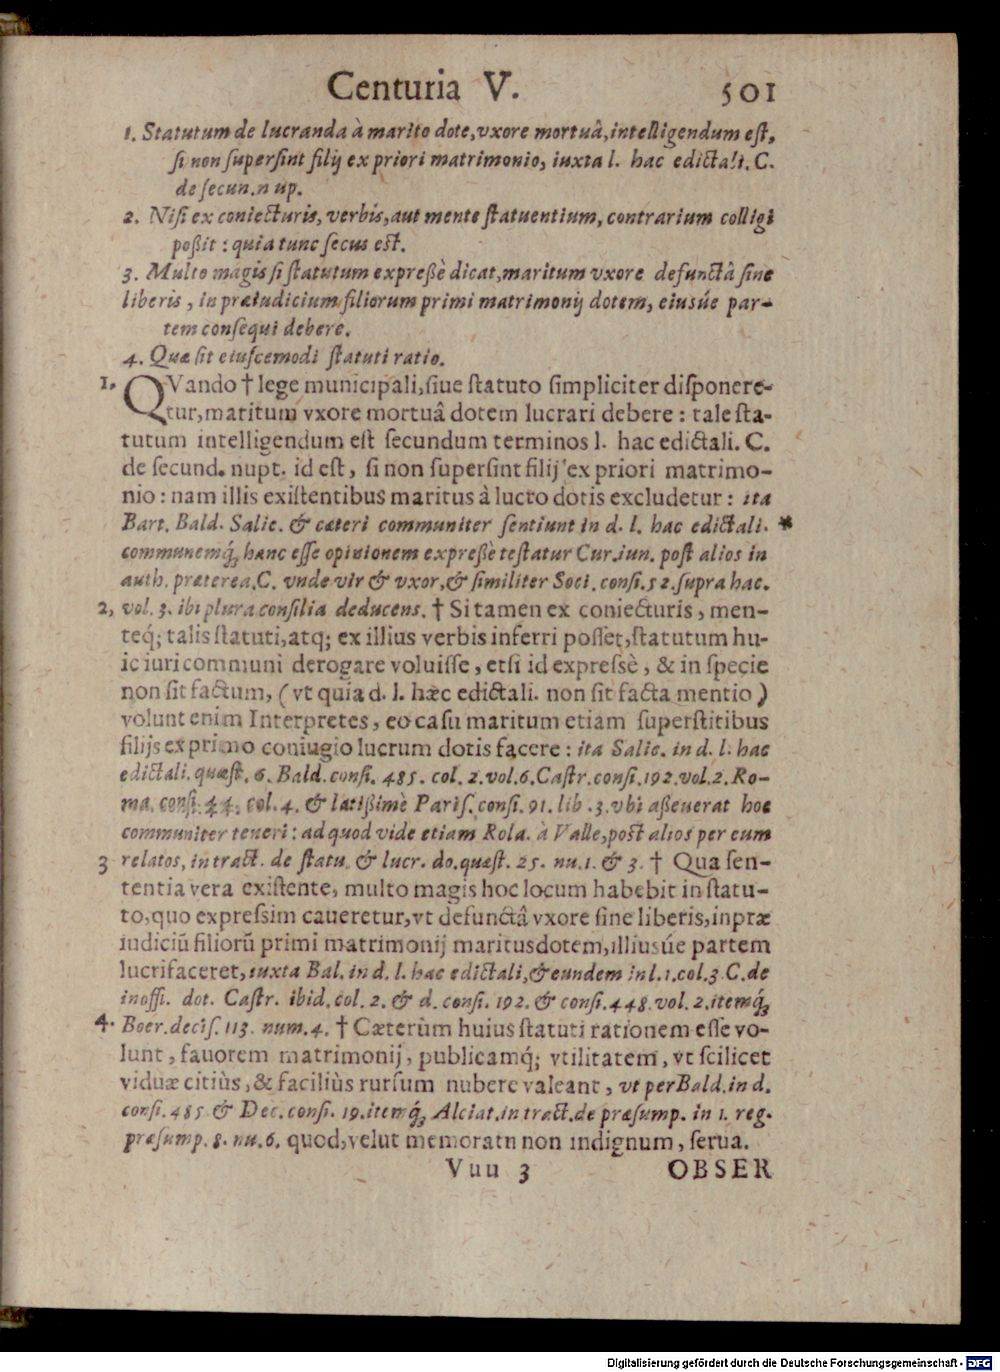 Centuria V. 501
1. Statutum de lucranda à marito dote, vxore mortuâ, intelligendum est,
si non supersint filij ex priori matrimonio, iuxta l. hac edictali. C.
de secun. nup.
2. Nisi ex coniecturis, verbis, aut mente statuentium, contrarium colligi
poßit: quia tunc secus est.
3. Multo magis si statutum expreßè dicat, maritum vxore defunctâ sine
liberis, in præiudicium filiorum primi matrimonij dotem, eiusúe par-
tem consequi debere.
4. Quæ sit eiuscemodi statuti ratio.
1. QVando † lege municipali, siue statuto simpliciter disponere-
tur, maritum vxore mortuâ dotem lucrari debere: tale sta-
tutum intelligendum est secundum terminos l. hac edictali. C.
de secund. nupt. id est, si non supersint filij ex priori matrimo-
nio: nam illis existentibus maritus à lucro dotis excludetur: ita
Bart. Bald. Salic. & cæteri communiter sentiunt in d. l. hac edictali. *
communemq́; hanc esse opinionem expreßè testatur Cur. iun. post alios in
auth. præterea. C. vnde vir & vxor, & similiter Soci. consi. 52. supra hac.
2, vol. 3. ibi plura consilia deducens. † Si tamen ex coniecturis, men-
teq́; talis statuti, atq; ex illius verbis inferri posset, statutum hu-
ic iuri communi derogare voluisse, etsi id expressè, & in specie
non sit factum, (vt quia d. l. hæc edictali. non sit facta mentio)
volunt enim Interpretes, eo casu maritum etiam superstitibus
filijs ex primo coniugio lucrum dotis facere: ita Salic. in d. l. hac
edictali. quæst. 6. Bald. consi. 485. col. 2. vol. 6. Castr. consi. 192. vol. 2. Ro-
ma. consi. 44. col. 4. & latißimè Paris. consi. 91. lib. 3. vbi aßeuerat hoc
communiter teneri: ad quod vide etiam Rola. à Valle, post alios per eum
3 relatos, in tract. de statu. & lucr. do. quæst. 25. nu. 1. & 3. † Qua sen-
tentia vera existente, multo magis hoc locum habebit in statu-
to, quo expressim caueretur, vt defunctâ vxore sine liberis, in præ
iudiciũ filiorũ primi matrimonij maritus dotem, illiusúe partem
lucrifaceret, iuxta Bal. in d. l. hac edictali, & eundem in l. 1. col. 3. C. de
inoffi. dot. Castr. ibid. col. 2. & d. consi. 192. & consi. 448. vol. 2. itemq́;
4. Boer. decis. 113. num. 4. † Cæterùm huius statuti rationem esse vo-
lunt, fauorem matrimonij, publicamq́; vtilitatem, vt scilicet
viduæ citiùs, & faciliùs rursum nubere valeant, vt per Bald. in d.
consi. 485 & Dec. consi. 19. itemq́; Alciat. in tract. de præsump. in 1. reg.
præsump. 8. nu. 6. quod, velut memoratu non indignum, serua.
Vuu 3 OBSER
Digitalisierung gefördert durch die Deutsche Forschungsgemeinschaft - DFG